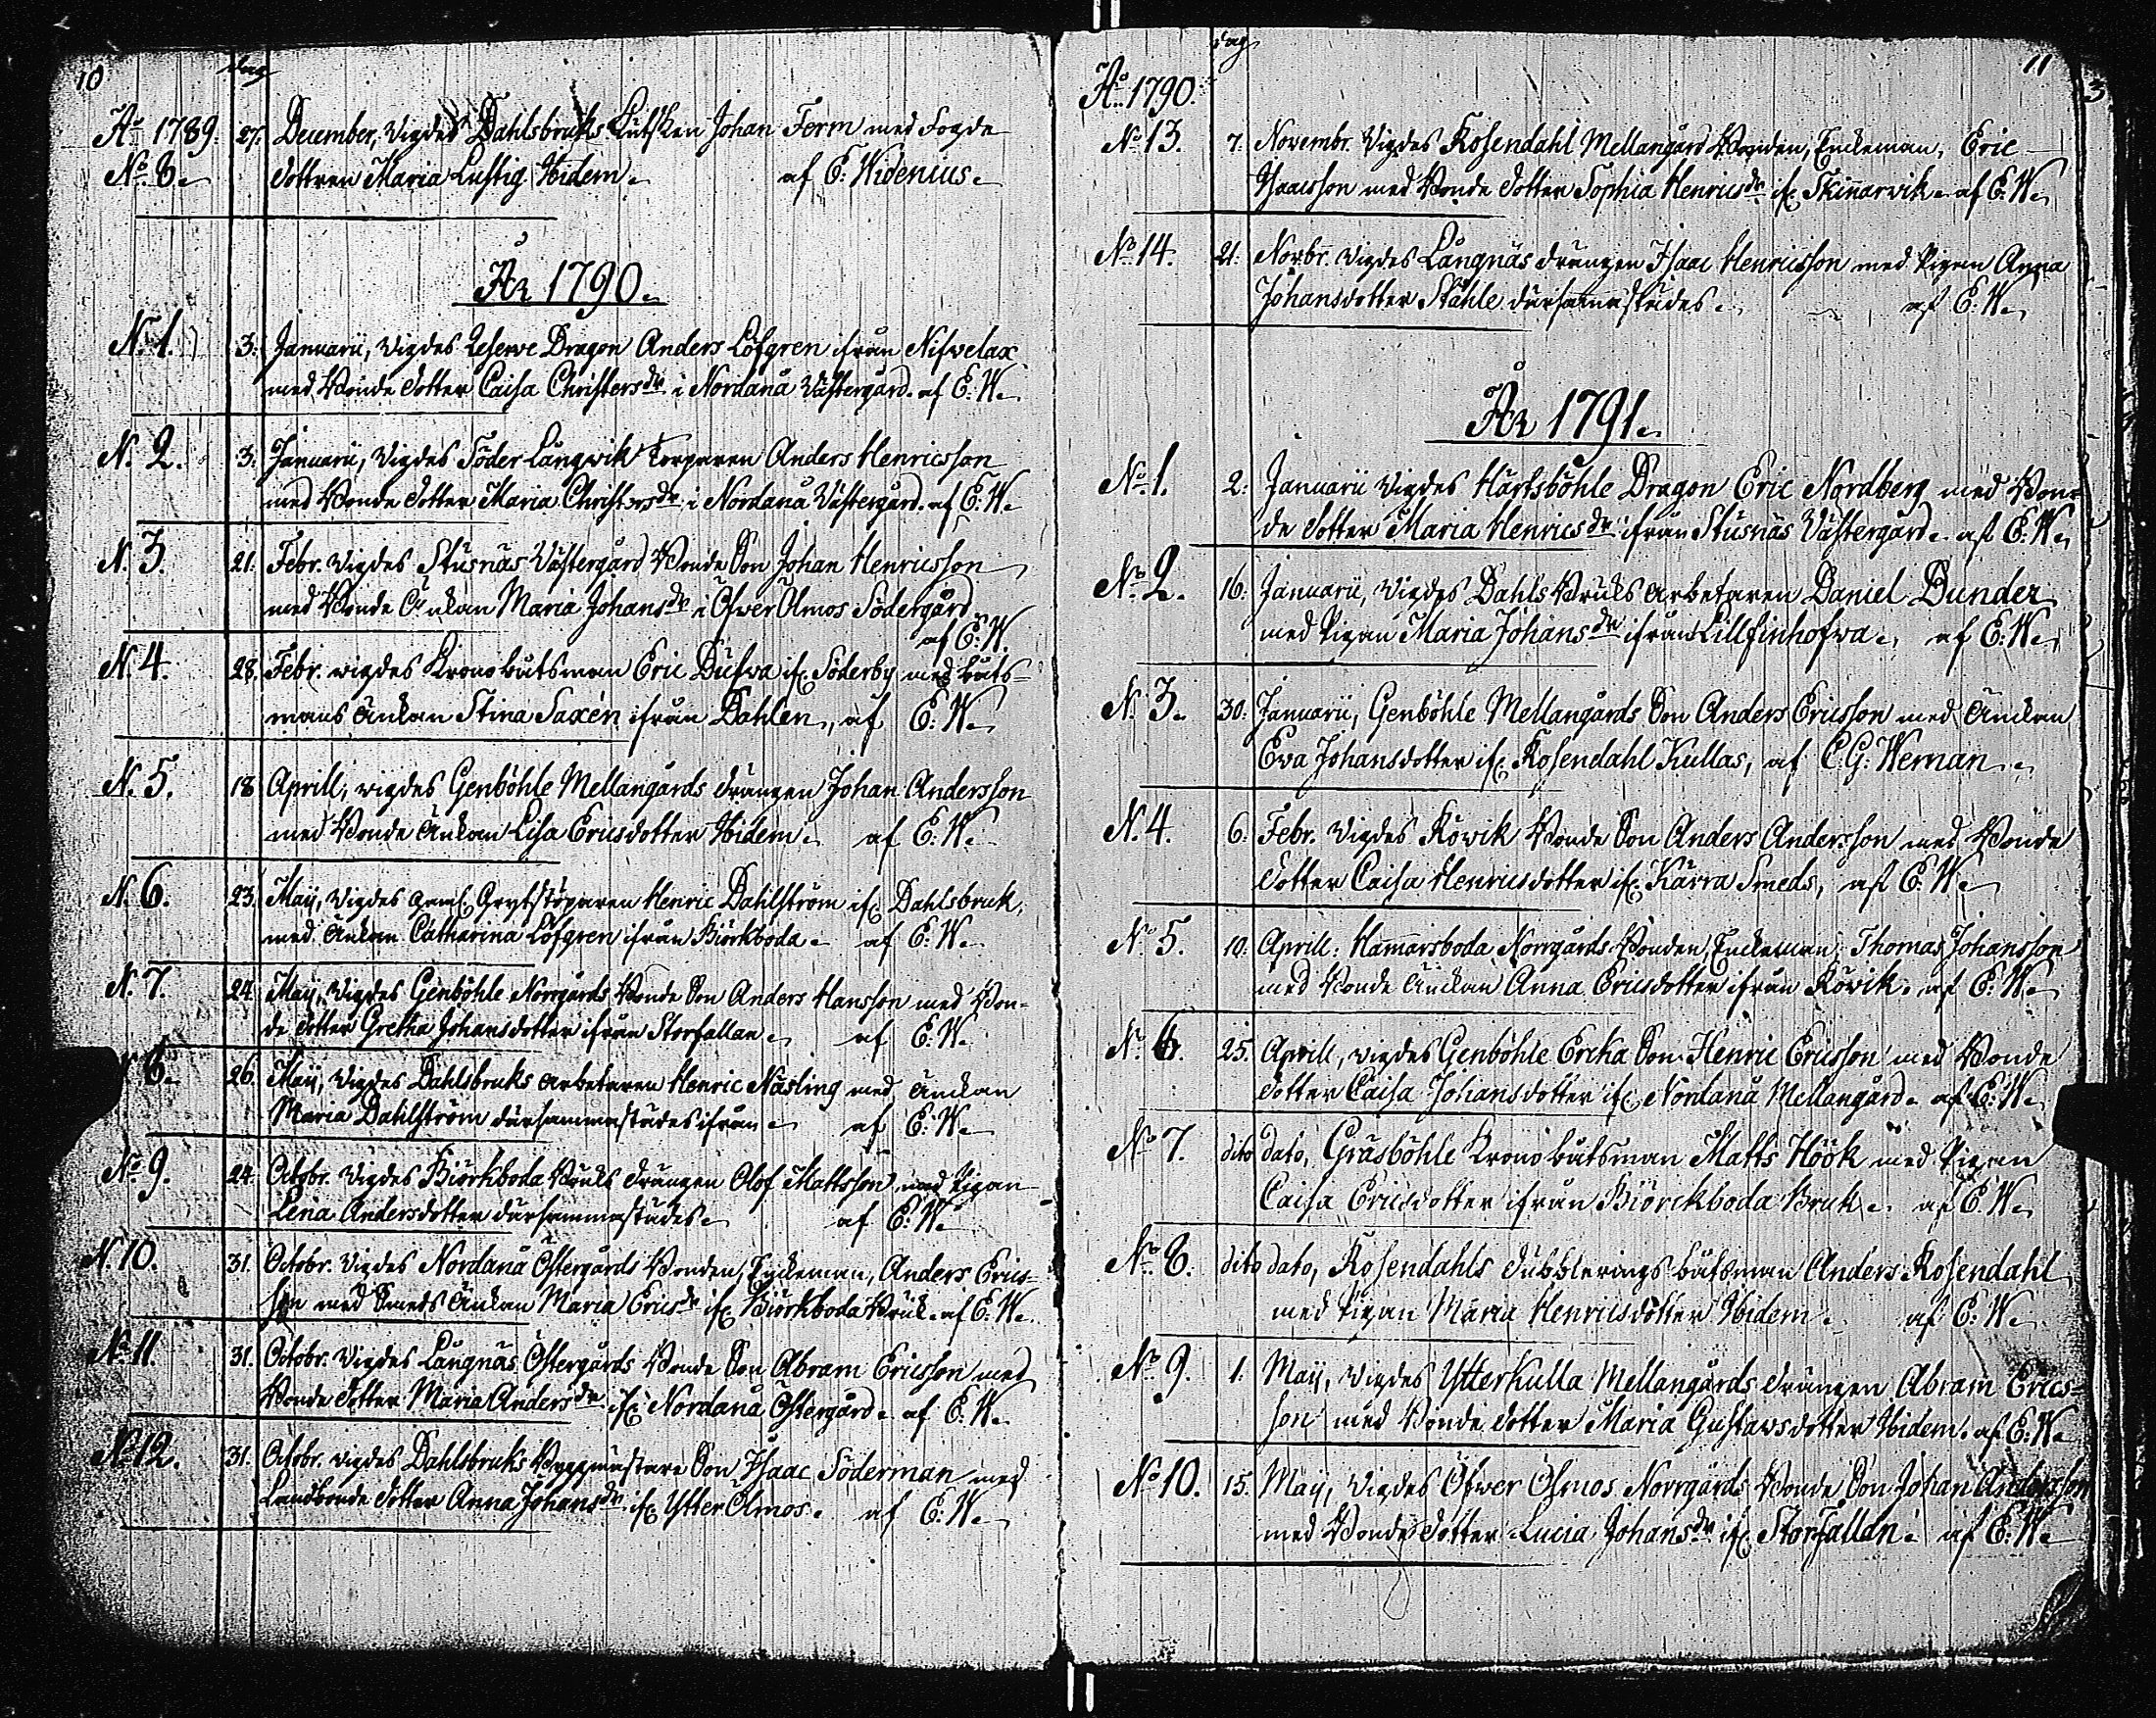 10
dag
Aº 1789. 27. December, vigdes Dahlsbruks Kutsken Johan Ferm med Fogde
Nº 8. dottren Maria Lustig Ibidem. af E. Widenius.
År 1790.
N. 1. 3. Januarii, vigdes Reserve Dragon Anders Löfgren ifrån Nifvelax
med Bonde dotter Caisa Christersdr i Nordanå Västergård. af E. W.
N. 2. 3. Januarii, vigdes Söder Långwik torparen Anders Henricsson
med Bonde dotter Maria Christersdr i Nordanå Västergård. af E. W.
N. 3. 21. Febr. vigdes Stusnäs Västergård Bonde Son Johan Henricsson
med Bonde Änkan Maria Johansdr i Öfwer Ölmos Södergård
af E. W.
N. 4. 28. Febr. vigdes Krono båtsman Eric Dufwa if. Söderby med båts=
mans änkan Stina Saxén ifrån Dahlen, af E: W.
N. 5. 18. Aprill, vigdes Genböhle Mellangårds drängen Johan Andersson
med Bonde änkan Lisa Ericsdotter Ibidem. af E. W.
N. 6. 23. Maij, vigdes Grytstöparen Henric Dahlström if. Dahlsbruk,
med änkan Catharina Löfgren ifrån Biörkboda. af E: W.
N. 7. 24. Maij, vigdes Genböhle Norrgårds Bonde Son Anders Hansson med Bon=
de dotter Gretha Johansdotter ifrån Storfallan. af E. W.
8. 26. Maij, vigdes Dahlsbruks arbetaren Henric Näsling med änkan
Maria Dahlström därsammastädes ifrån. af E: W.
Nº 9. 24. Octobr. vigdes Biörkboda Bruks drängen Olof Mattsson med Pigan
Lena Andersdotter därsammastädes. af E: W.
N. 10. 31. Octobr. vigdes Nordanå Östergårds Bonden, Enckeman, Anders Erics=
son med Smeds änkan Maria Ericsdr if. Biörkboda Bruk. af E: W.
Nº 11. 31. Octobr. vigdes Långnäs Östergårds Bonde Son Abram Ericsson med
Bonde dotter Maria Andersdr if. Nordanå Östergård. af E. W.
Nº 12. 31. Octobr. vigdes Dahlsbruks Byggmästare Son Isaac Söderman med
Landbonde dotter Anna Johansdr if. Ytter Ölmos. af E: W.
dag
11
3
Aº 1790.
Nº 13. 7. Novembr. vigdes Rosendahl Mellangård Bonden, Enckeman, Eric
Isaacsson med Bonde dotter Sophia Henricsdr if. Skinnarvik. af E: W.
Nº 14. 21. Novbr. vigdes Långnäs drängen Isaac Henricsson med Pigan Anna
Johansdotter Ståhle därsammastädes. af E. W.
År 1791.
Nº 1. 2. Januarii vigdes Hartsböhle Dragon Eric Nordberg med Bon=
de dotter Maria Henricsdr ifrån Stusnäs Västergård. af E: W.
Nº 2. 16. Januarii, vigdes Dahls Bruks arbetaren Daniel Dunder
med Pigan Maria Johansdr ifrån Lillfinhofwa. af E: W.
N. 3. 30. Januarii, Genböhle Mellangårds Son Anders Ericsson med Änckan
Eva Johansdotter if. Rosendahl Kullas, af C. G. Wernan.
N. 4. 6. Febr. vigdes Rövik Bonde Son Anders Andersson med Bonde
dotter Caisa Henricsdotter if. Kärra Smeds, af E: W.
Nº 5. 10. Aprill: Hammarsboda Norrgårds Bonden, Enckeman, Thomas Johansson
med Bonde Änckan Anna Ericsdotter ifrån Rövik. af E: W.
Nº 6. 25. Aprill, vigdes Genböhle Ercka Son Henric Ericsson med Bonde
dotter Caisa Johansdotter if. Nordanå Mellangård. af E: W.
Nº 7. dito dato, Gräsböhle Krono båtsman Matts Höök med Pigan
Caisa Ericsdotter ifrån Biörckboda Bruk. af E: W.
Nº 8. dito dato, Rosendahls dubblerings båtsman Anders Rosendahl
med Pigan Maria Henricsdotter Ibidem. af E: W.
Nº 9. 1. Maij, vigdes Ytterkulla Mellangårds drängen Abram Erics=
son med Bonde dotter Maria Gustavsdotter Ibidem. af E: W.
Nº 10. 15. Maij, vigdes Öfwer Ölmos Norrgårds Bonde Son Johan Andersson
med Bonde dotter Lucia Johansdr if. Storfallan. af E: W.